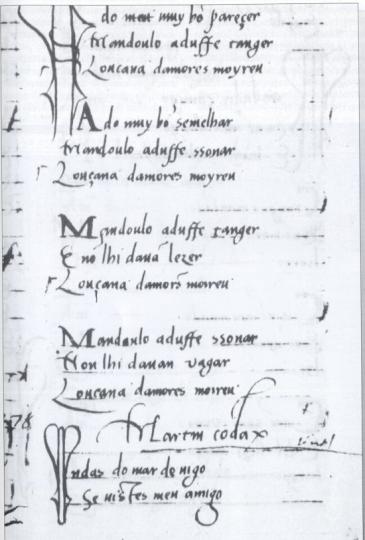 A do meu muy bõ pareçer
Mandoulo aduffe tanger
Louçana damores moyreu
A do muy bõ semelhar
Mandoulo aduffe ssonar
Louçana damores moyreu
Mandoulo aduffe tanger
E nõ lhi davã lezer
Louçana damors moireu
Mandoulo aduffe ssonar
Non lhi davan vagar
Louçana damores moireu
Martin codax
Undas do mar de uigo
Se uistes meu amigo